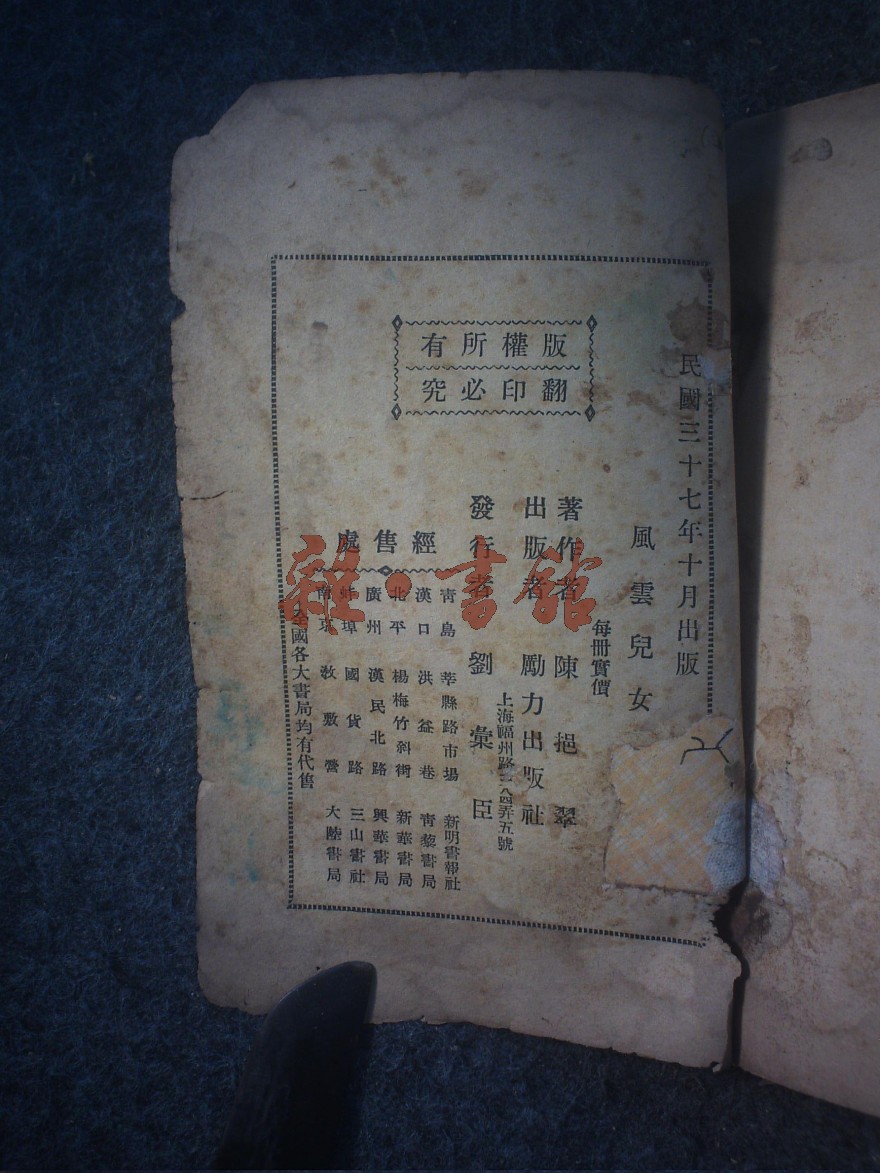 民國三十七年十月出版
風雲兒女
每冊實價
著作者 陳挹翠
出版者 勵力出版社
上海福州路三八四弄五號
發行者 劉彙臣
版權所有
翻印必究
經售處
青島 莘縣路市場 新明書報社
漢口 洪益巷 青黎書局
北平 楊梅竹斜街 新華書局
廣州 漢民北路 興華書局
蚌埠 國貨路 三山書社
南京 敷營 大陸書局
全國各大書局均有代售
雜·書館